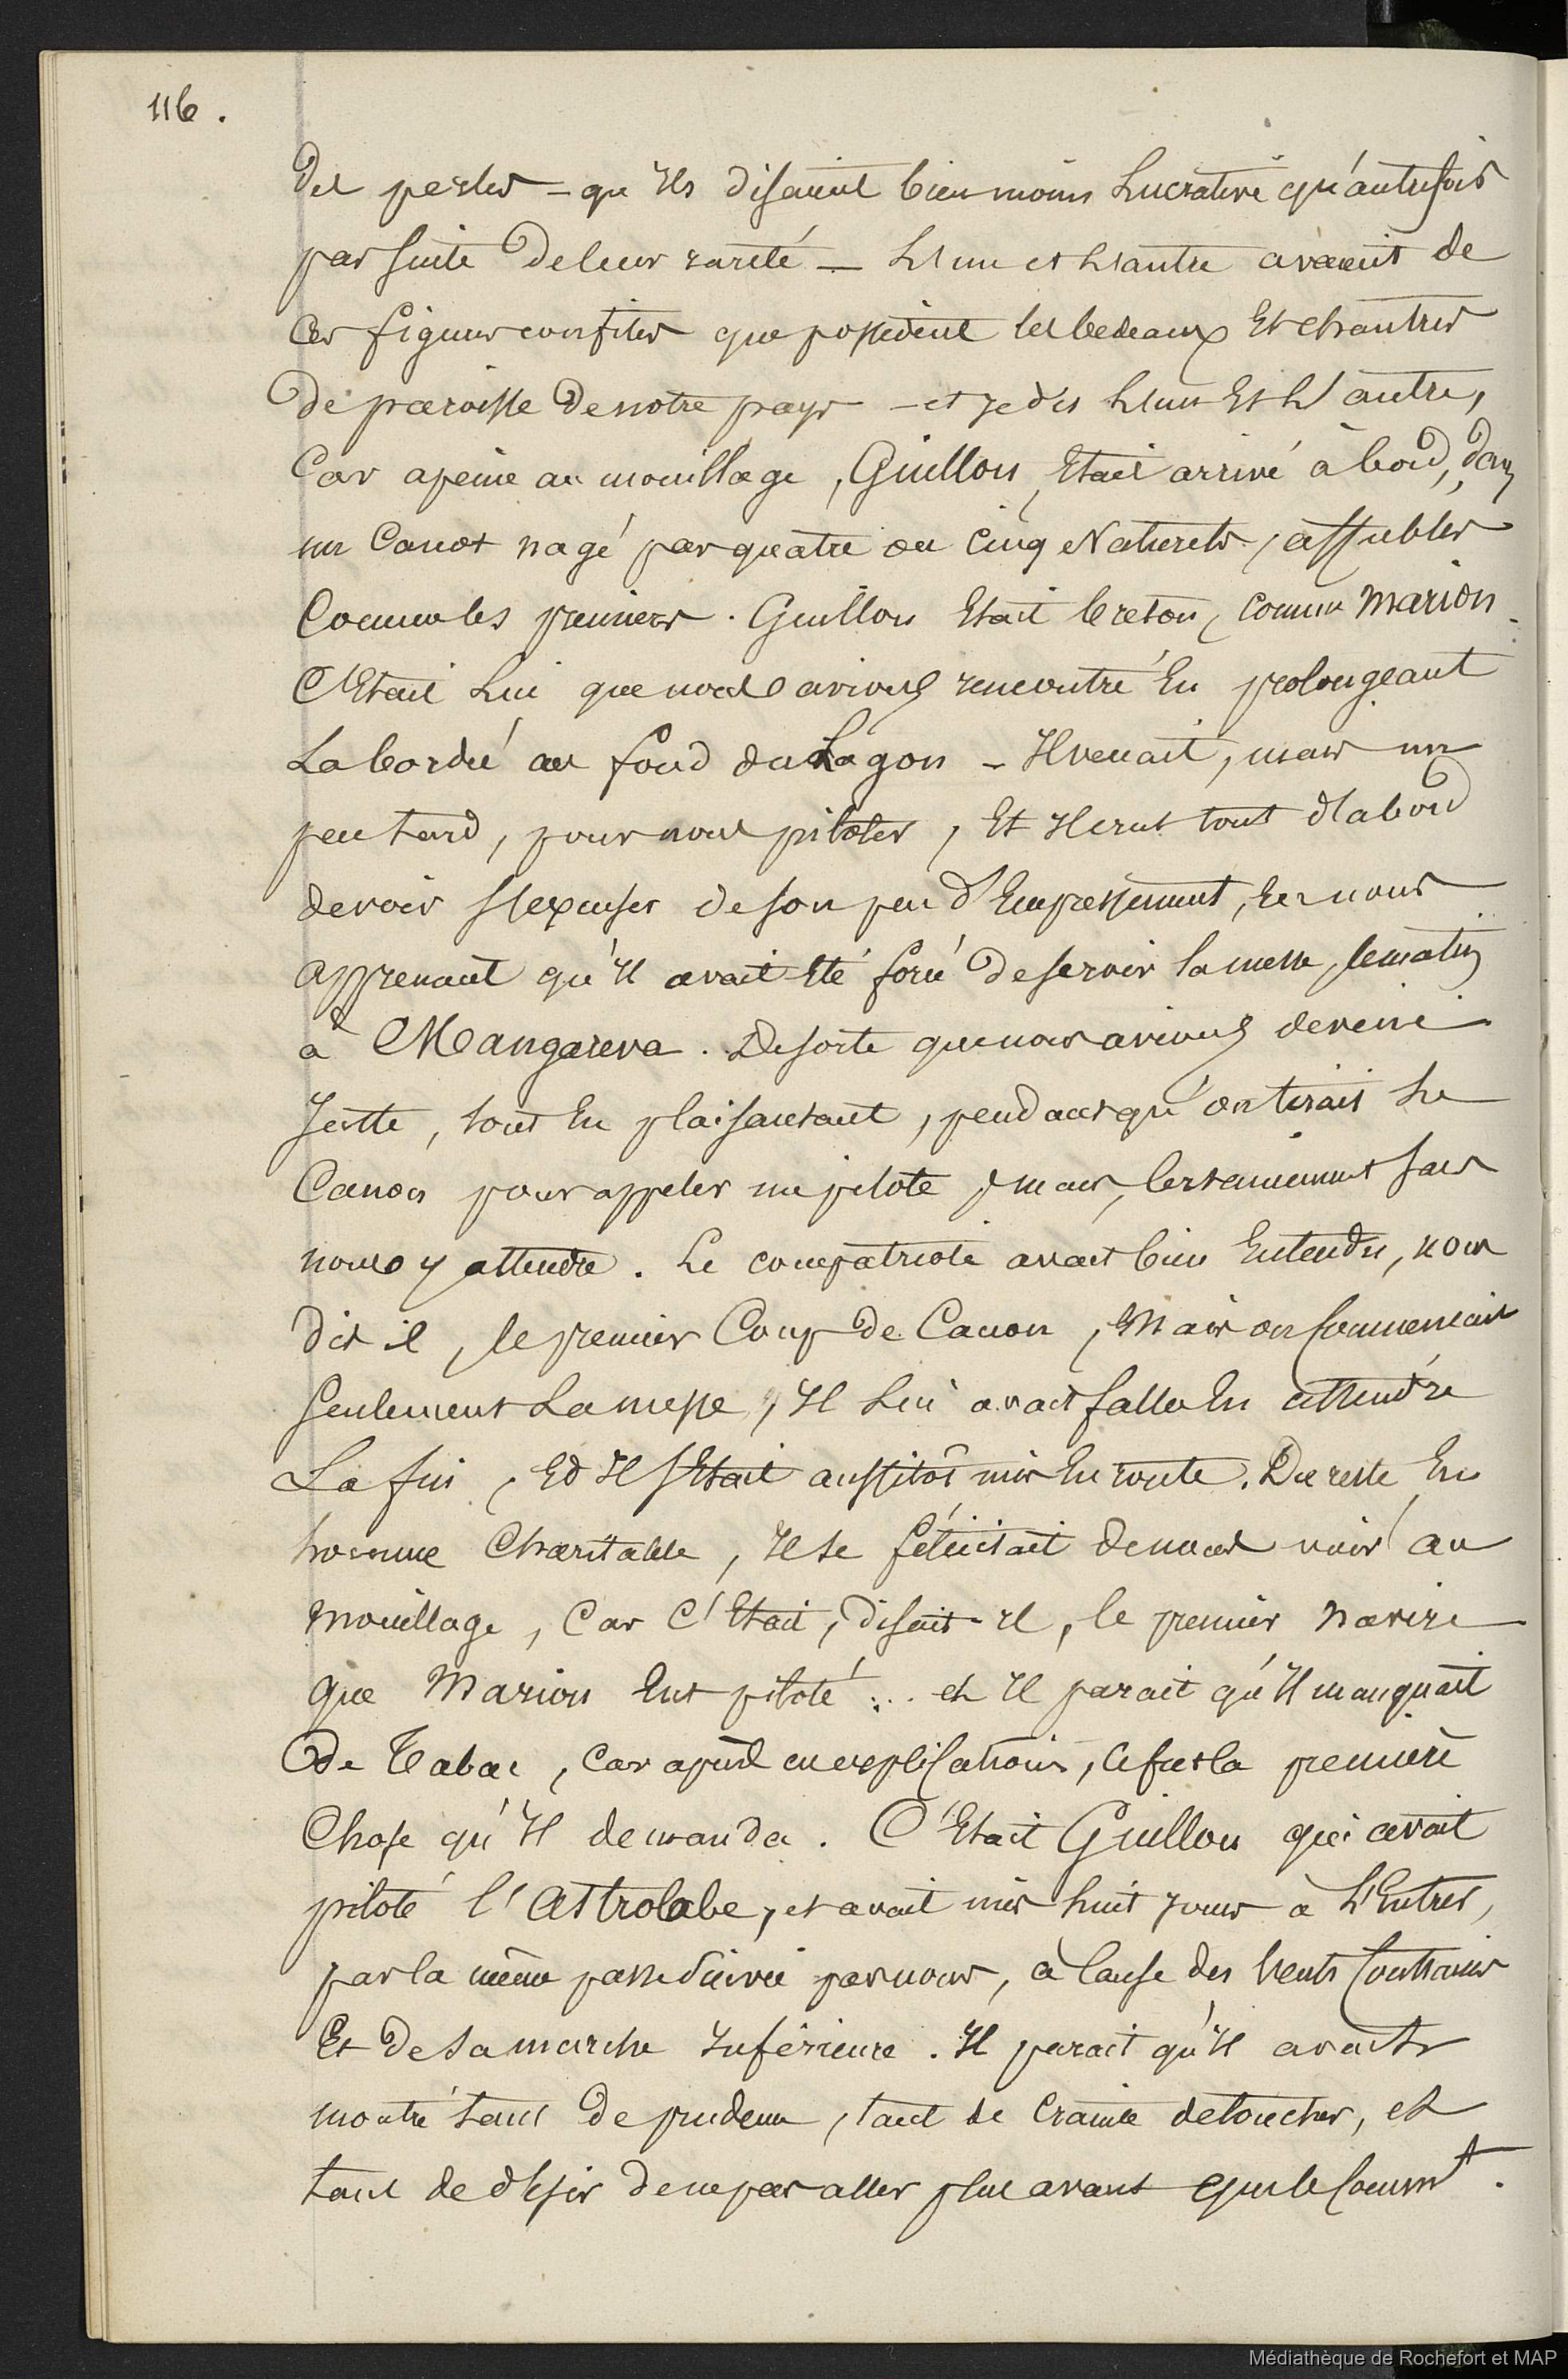 116.
des perles - qu'Ils disaient bien moins Lucrative qu'autrefois
par suite de leur rareté — L'un et L'autre avaient de
Ces figures confites que possèdent les bedeaux Et chantres
de paroisse de notre pays - et Je dis L'un Et L'autre,
Car apeine au mouillage, Guillou, Etait arrivé à bord, dans
un Canot nagé par quatre ou Cinq Naturels, affublés
Comme les premiers. Guillou Etait breton, comme Marion.
C'Etait Lui que nous avions rencontré En prolongeant
La bordée au fond du Lagon - Il venait, mais un
peu tard, pour nous piloter, Et Il crut tout d'abord
devoir s'excuser de son peu d'Empressement, En nous
apprenant qu'Il avait Eté forcé de servir la messe, le matin
à Mangareva. De sorte que nous avions deviné
Juste, tout En plaisantant, pendant qu'on tirait Le
Canon pour appeler un pilote, mais, Certainement sans
nous y attendre. Le compatriote avait bien Entendu, nous
dit il, le premier Coup de Canon, Mais on Commençait
Seulement La messe, Il Lui avait fallu En attendre
La fin, Et Il s'Etait aussitôt mis En route. Du reste En
homme Charitable, Il se félicitait de nous voir au
mouillage, Car C'Etait, disait-Il, le premier navire
que Marion Eut piloté... et Il parait qu'Il manquait
de Tabac, Car après ces explications, Ce fut la première
Chose qu'Il demanda. C'Etait Guillou qui avait
piloté l'Astrolabe, et avait mis huit jours à L'Entrer,
par la même passe suivie par nous, à Cause des Vents Contraires
Et de sa marche Inférieure. Il parait qu'Il avait
montré tant de prudence, tant de Crainte de toucher, et
tant de désir de ne pas aller plus avant que le Comm<sup>t</sup>.
Médiathèque de Rochefort et MAP